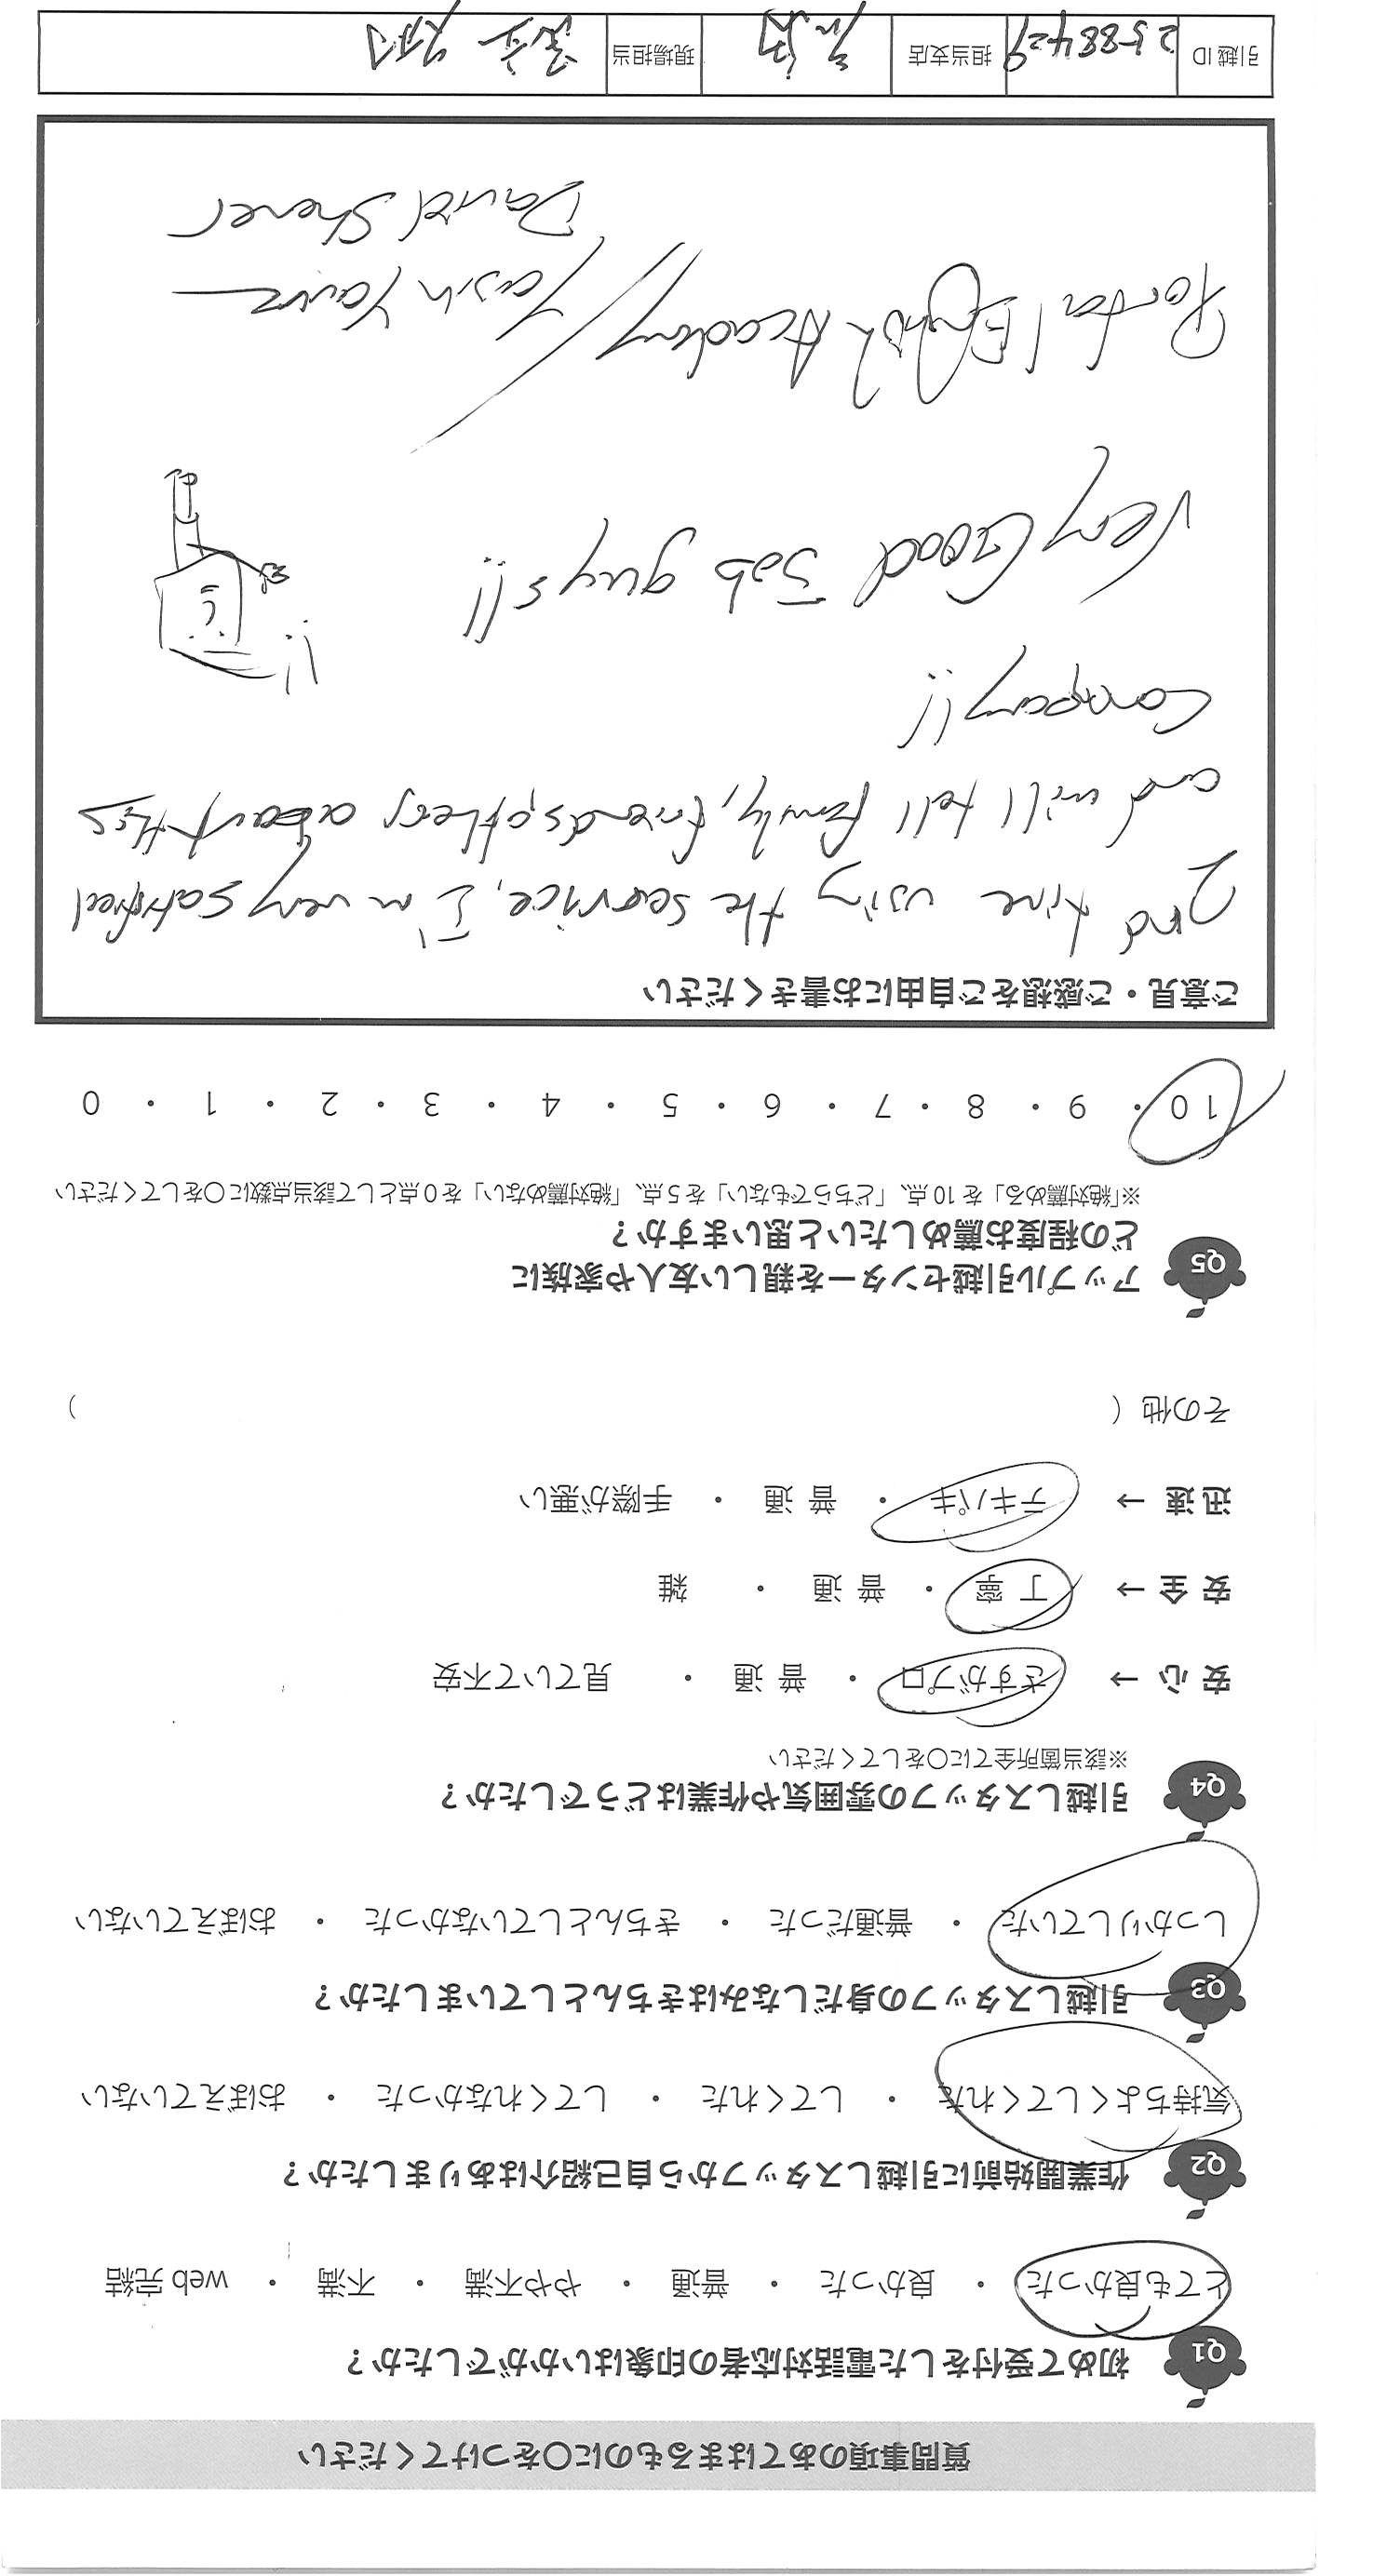 質問事項のあてはまるものに〇をつけてください
Q1 初めて受付をした電話対応者の印象はいかがでしたか？
とても良かった ・ 良かった ・ 普通 ・ やや不満 ・ 不満 ・ web 完結
Q2 作業開始前に引越しスタッフから自己紹介はありましたか？
気持ちよくしてくれた ・ してくれた ・ してくれなかった ・ おぼえていない
Q3 引越しスタッフの身だしなみはきちんとしていましたか？
しっかりしていた ・ 普通だった ・ きちんとしていなかった ・ おぼえていない
Q4 引越しスタッフの雰囲気や作業はどうでしたか？
※該当箇所全てに〇をしてください
安 心 → さすがプロ ・ 普 通 ・ 見ていて不安
安 全 → 丁 寧 ・ 普 通 ・ 雑
迅 速 → テキパキ ・ 普 通 ・ 手際が悪い
その他（ ）
Q5 アップル引越センターを親しい友人や家族に
どの程度お薦めしたいと思いますか？
※「絶対薦める」を 10 点、「どちらでもない」を 5 点、「絶対薦めない」を 0 点として該当点数に〇をしてください
10 ・ 9 ・ 8 ・ 7 ・ 6 ・ 5 ・ 4 ・ 3 ・ 2 ・ 1 ・ 0
ご意見・ご感想をご自由にお書きください
2nd time using the searvice, I'm very satisfied
and will tell family, friends, others about this
company!!
Very Good Job guys!!
Portal English Academy/
David Sherer
引越 ID 2588429 担当支店 現場担当